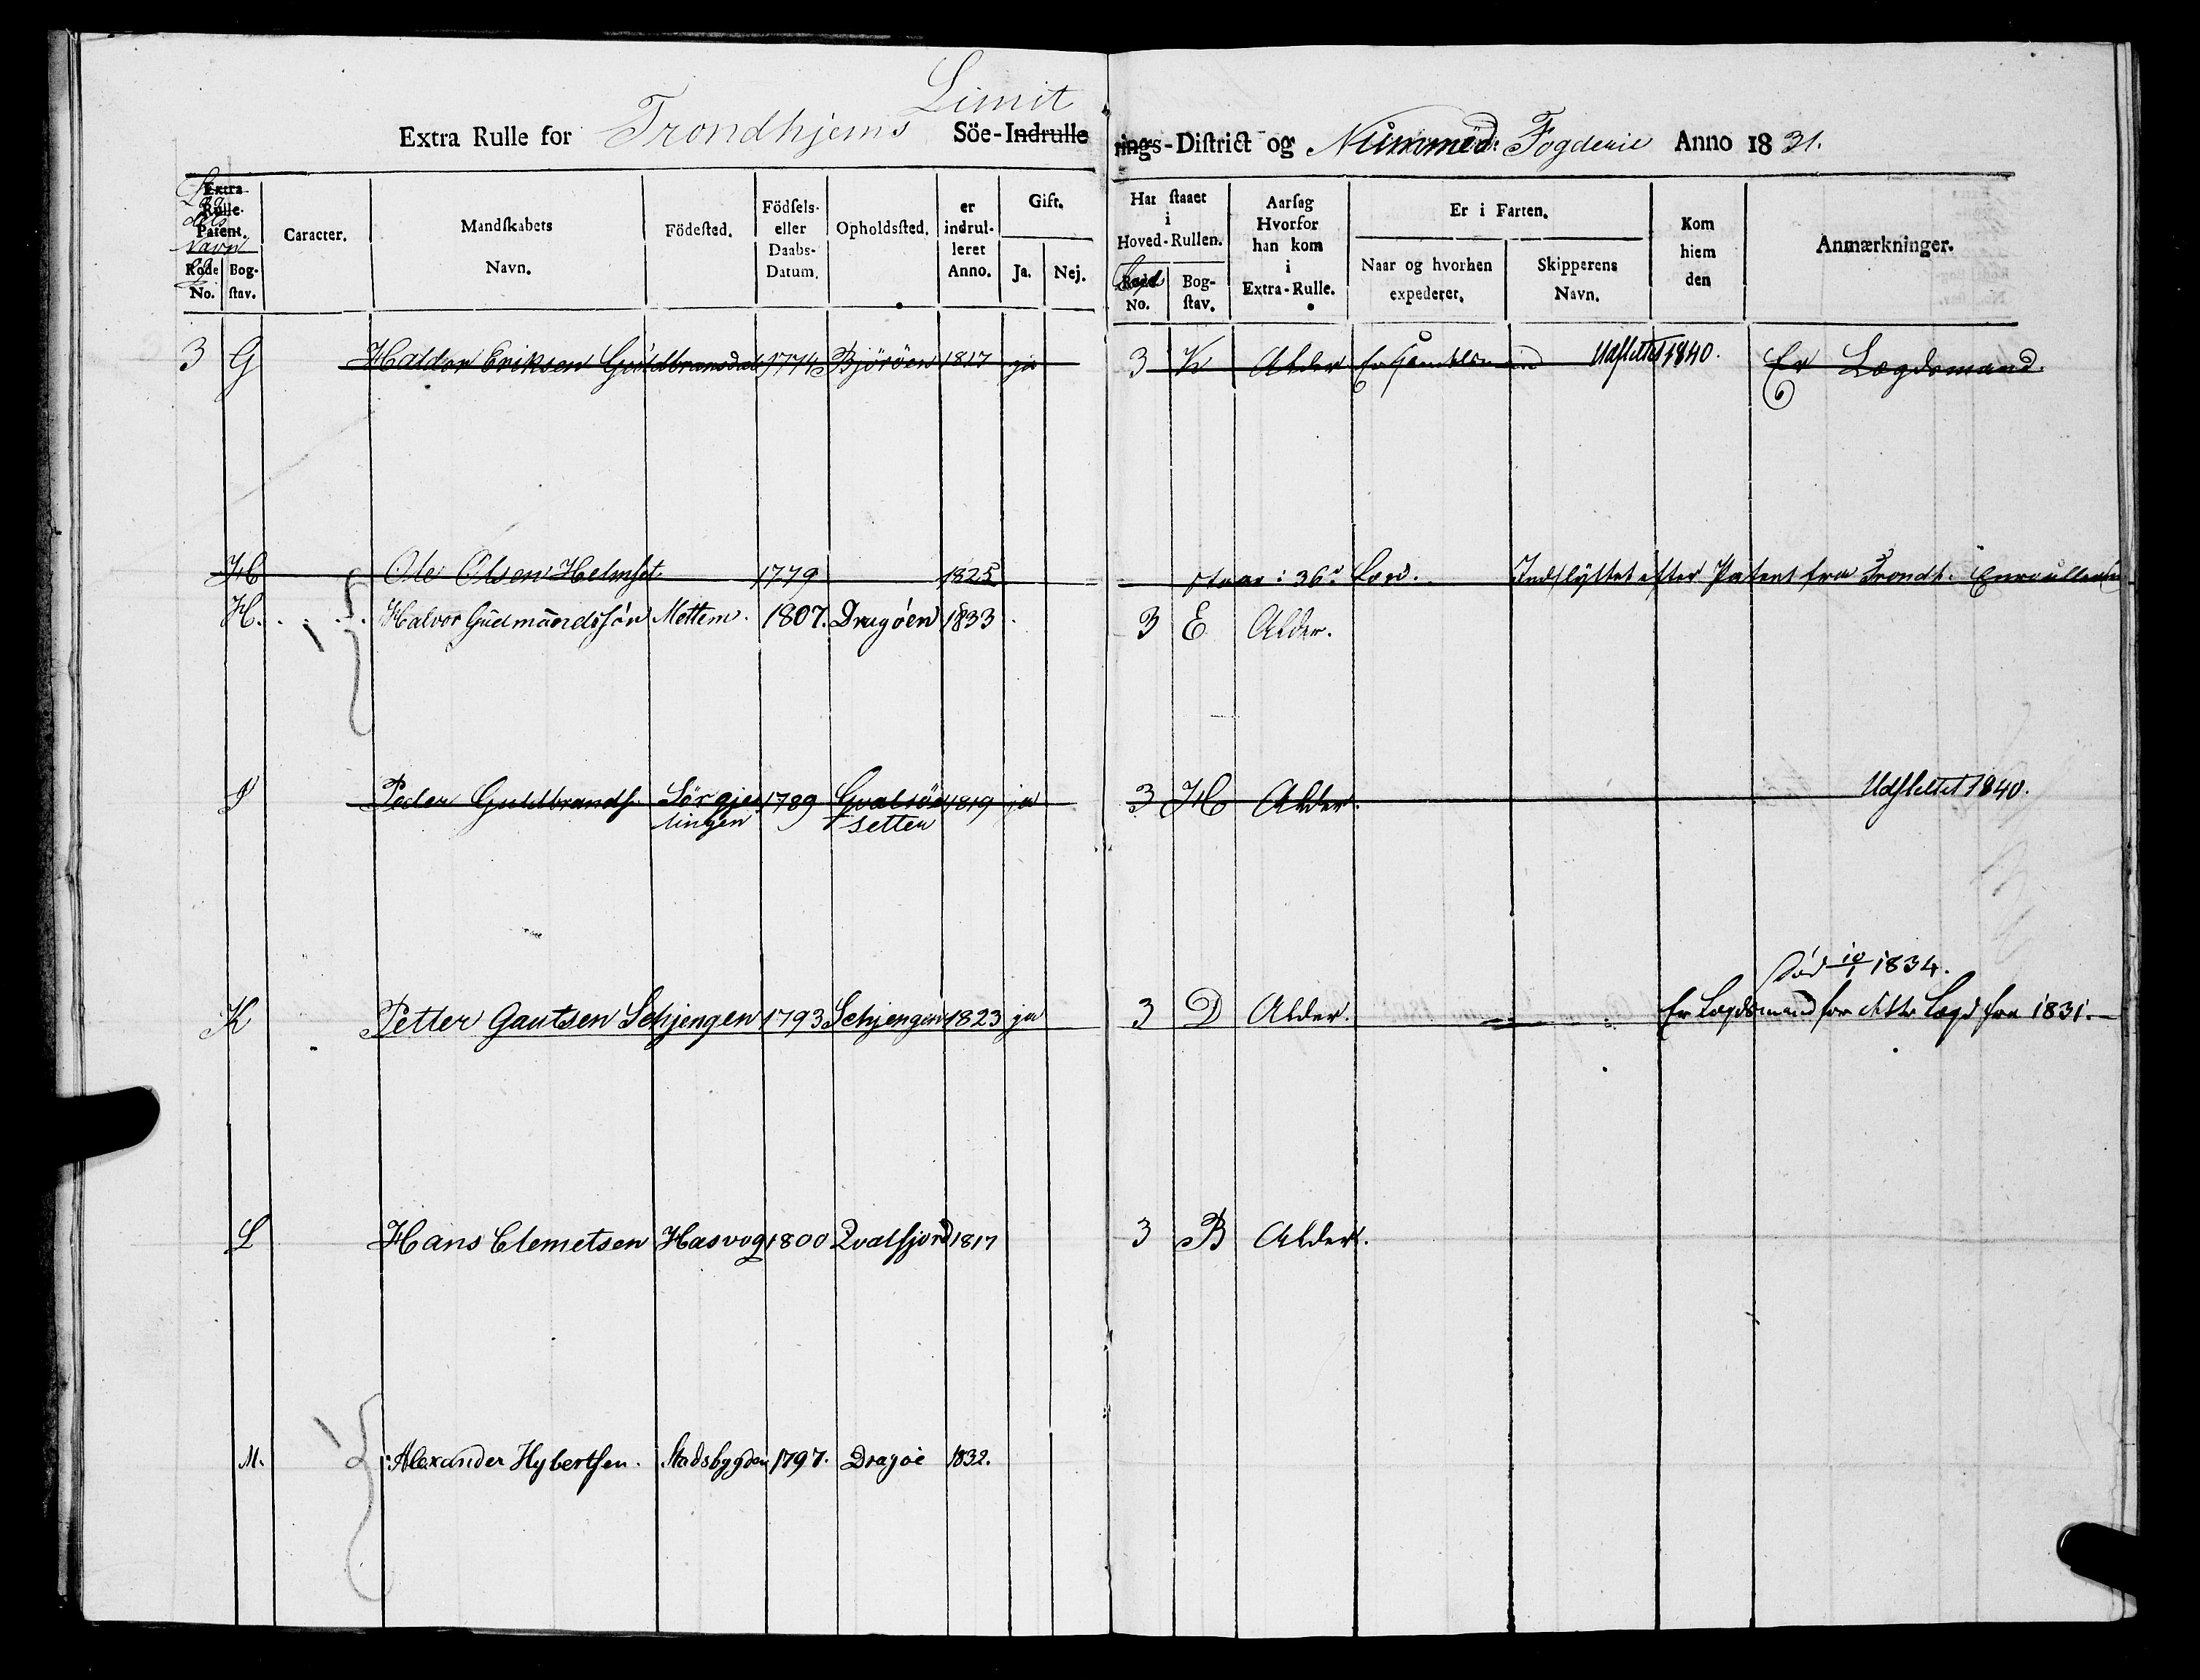 Limit
Extra Rulle for Trondhjems Söe-Indrullerings-District og Nummed: Fogderie Anno 1831.
Extra Rulle Patent.
Lægdets Navn og
Rode No.
Bogstav.
Caracter.
Mandskabets Navn.
Födested.
Födsels- eller Daabs-Datum.
Opholdssted.
er indrulleret Anno.
Gift.
Ja.
Nej.
Har staaet i Hoved-Rullen.
Rode No.
Lægd
Bogstav.
Aarsag Hvorfor han kom i Extra-Rulle.
Er i Farten.
Naar og hvorhen expederet.
Skipperens Navn.
Kom hiem den
Anmærkninger.
3 G Haldor Eriksen Guldbransdal 1774 Björöen 1817 ja 3 K Alder Udslettet 1840. Er Lægdsmand.
H Ole Olsen Helmset 1779 1825 staar i 36te Lægd. Indflyttet efter Patent fra Trondh. Enroullering
H. Halvor Gudmundssön Mettem. 1807. Dragöen 1833 3 E Alder.
I Peder Guldbrands. Sörgjes 1789 Gvalsöe 1819 ja 3 H Alder. Udslettet 1840.
lingen setten
död 10/1 1834.
K Petter Gautsen Schjengen 1793 Schjengen 1823 ja 3 D Alder. Er Lægdsmand for dette Lægd fra 1831.
L Hans Clemetsen Hasvog 1800 Qvalfjord 1817 3 B Alder.
M. Alexander Hybertsen. Stadsbygden 1797. Dragöe 1832.